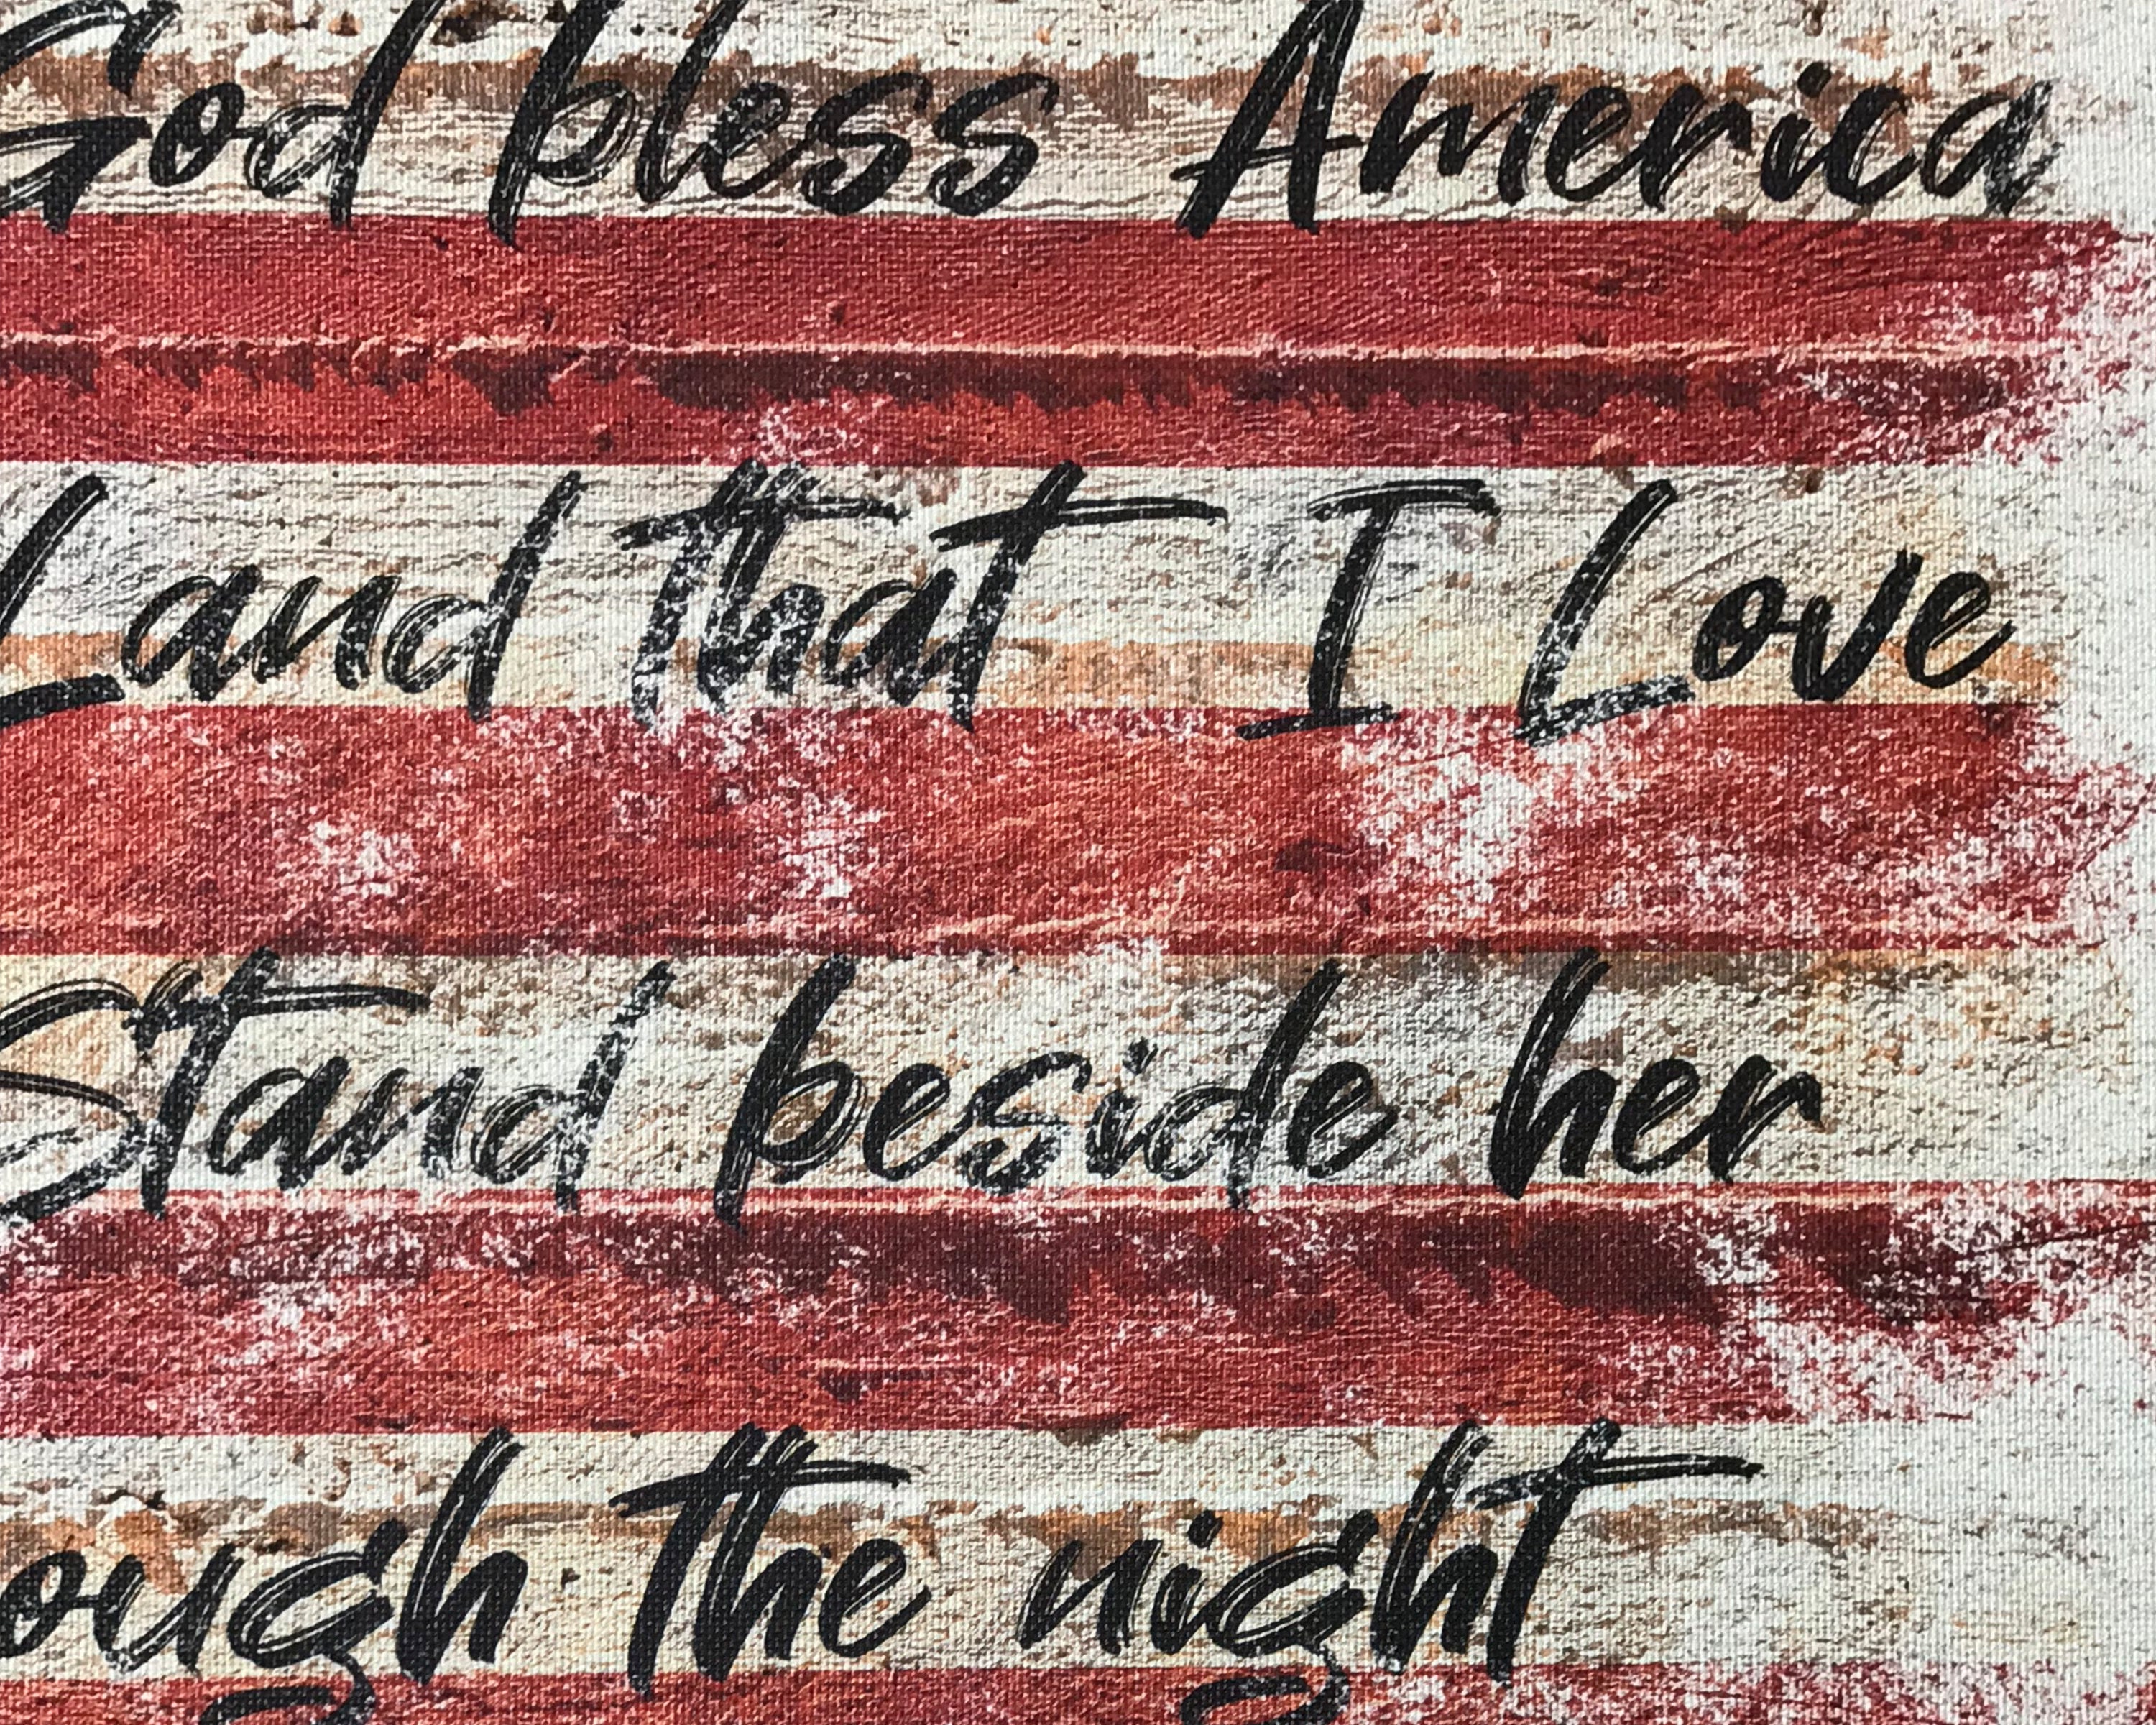 God bless America
Land that I Love
Stand beside her
ough the night